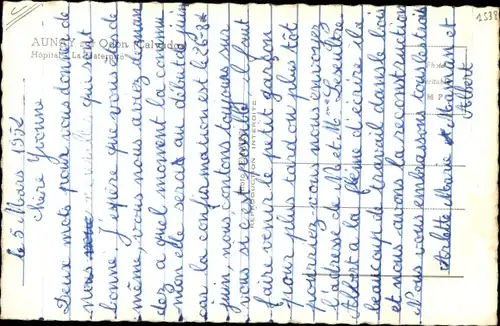 AUNAY sur Odon (Calvados)
Hôpital - La Maternité
REPRODUCTION INTERDITE
le 5 Mars 1952
Chère Yvonne
Deux mots pour vous donner
nous qui sont
bonne. J'espère que vous de
même, vous nous aviez deman
dez a quel moment la commu
nion elle serait au début de juin
car la confirmation est le
juin, nous contons toujours sur
vous si c'est possible il faut
faire venir le petit garçon
pour plus tard ou plus tôt
pourriez vous nous envoyez
l'adresse de Mr et Mme
Albert a la flème d'écrire il a
beaucoup de travail dans le bois
et nous avons la reconstruction
Nous vous embrassons tous bien
Arlette Marie Maman et
Albert